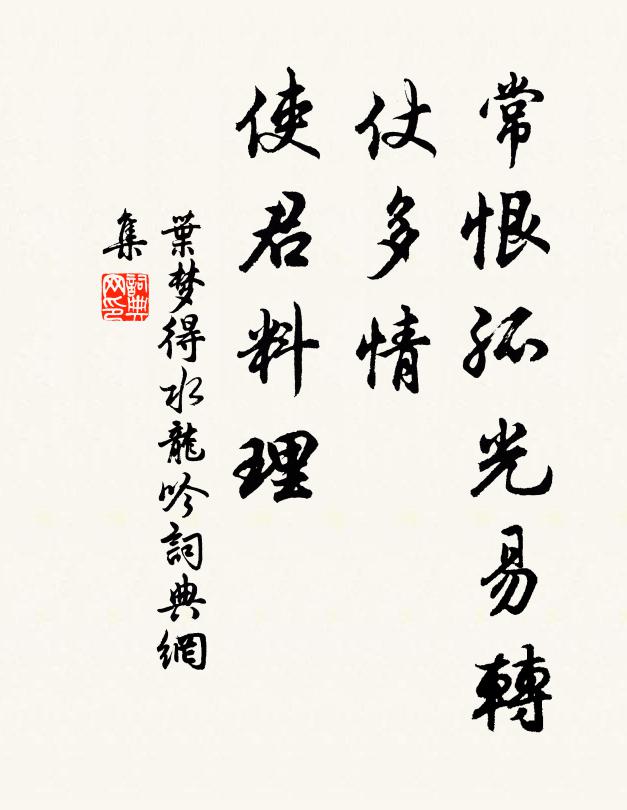 常恨孤光易轉
仗多情
使君料理
葉梦得水龍吟詞典網
集
詞典
网印